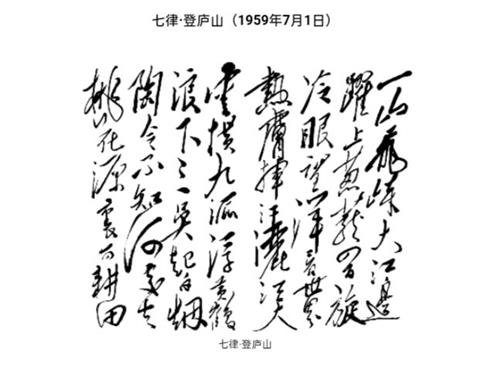 七律·登庐山（1959年7月1日）
一山飛峙大江邊
躍上葱蘢四百旋
冷眼望洋看世界
熱膚揮汗灑江天
雲横九派浮黄鶴
浪下三吴起白烟
陶令不知何處去
桃花源裏可耕田
七律·登庐山